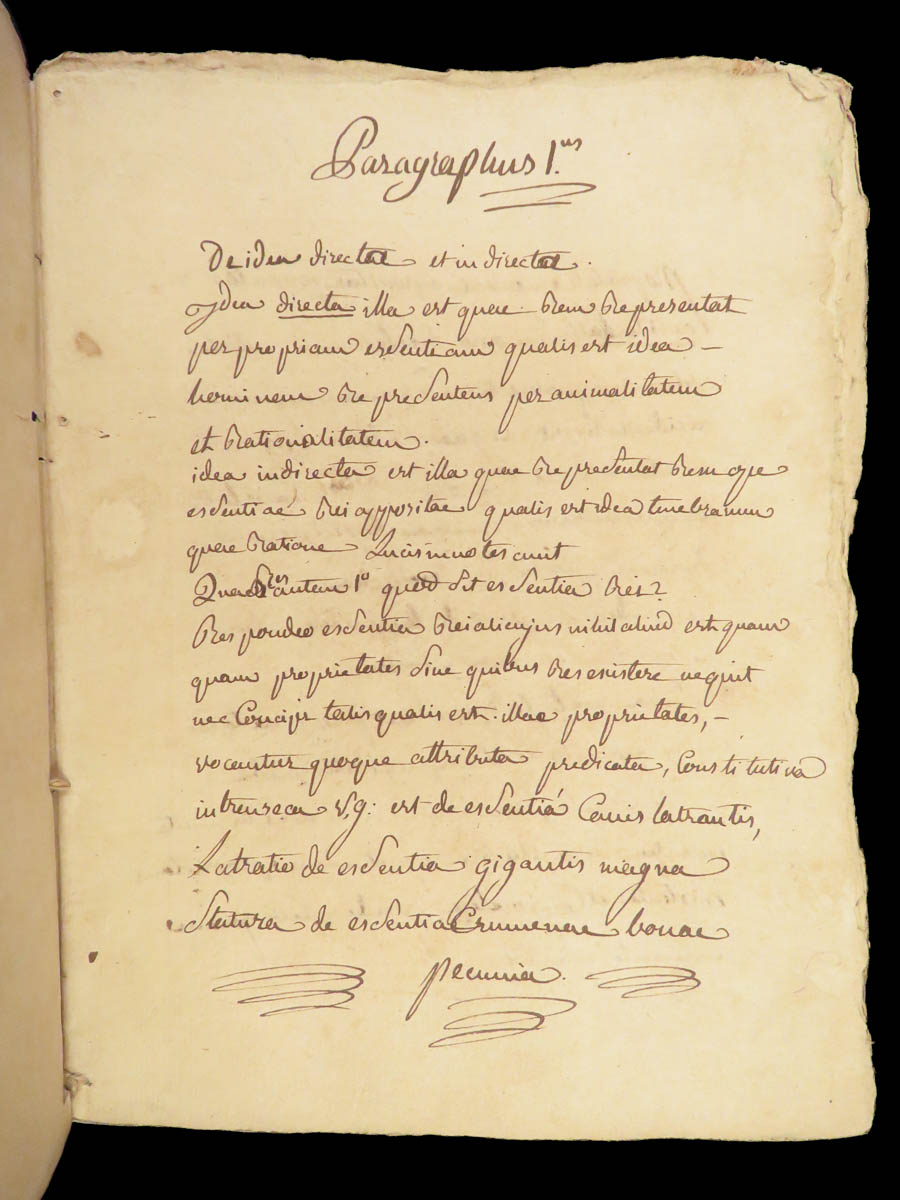 Paragraphus 1.us
De idea directae et indirectae.
Idea directa illa est quae rem representat
per propriam essentiam qualis est idea –
hominem representens per animalitatem
et rationalitatem.
idea indirecta est illa quae representat rem ope
essentiae rei oppositae qualis est idea tenebrarum
quae ratione Lucis innotescunt
Quaeres autem 1º quod sit essentia rei?
Respondeo essentia rei alicujus nihil aliud est quam
quam proprietates sine quibus res existere nequit
nec Concipi talis qualis est. illae proprietates, –
vocantur quoque attributa predicata, Constitutiva
intrenseca V,g: est de essentiá Canis latrantis,
Latratio de essentia gigantis magna
Statura de essentia Crumenae bonae
pecunia.